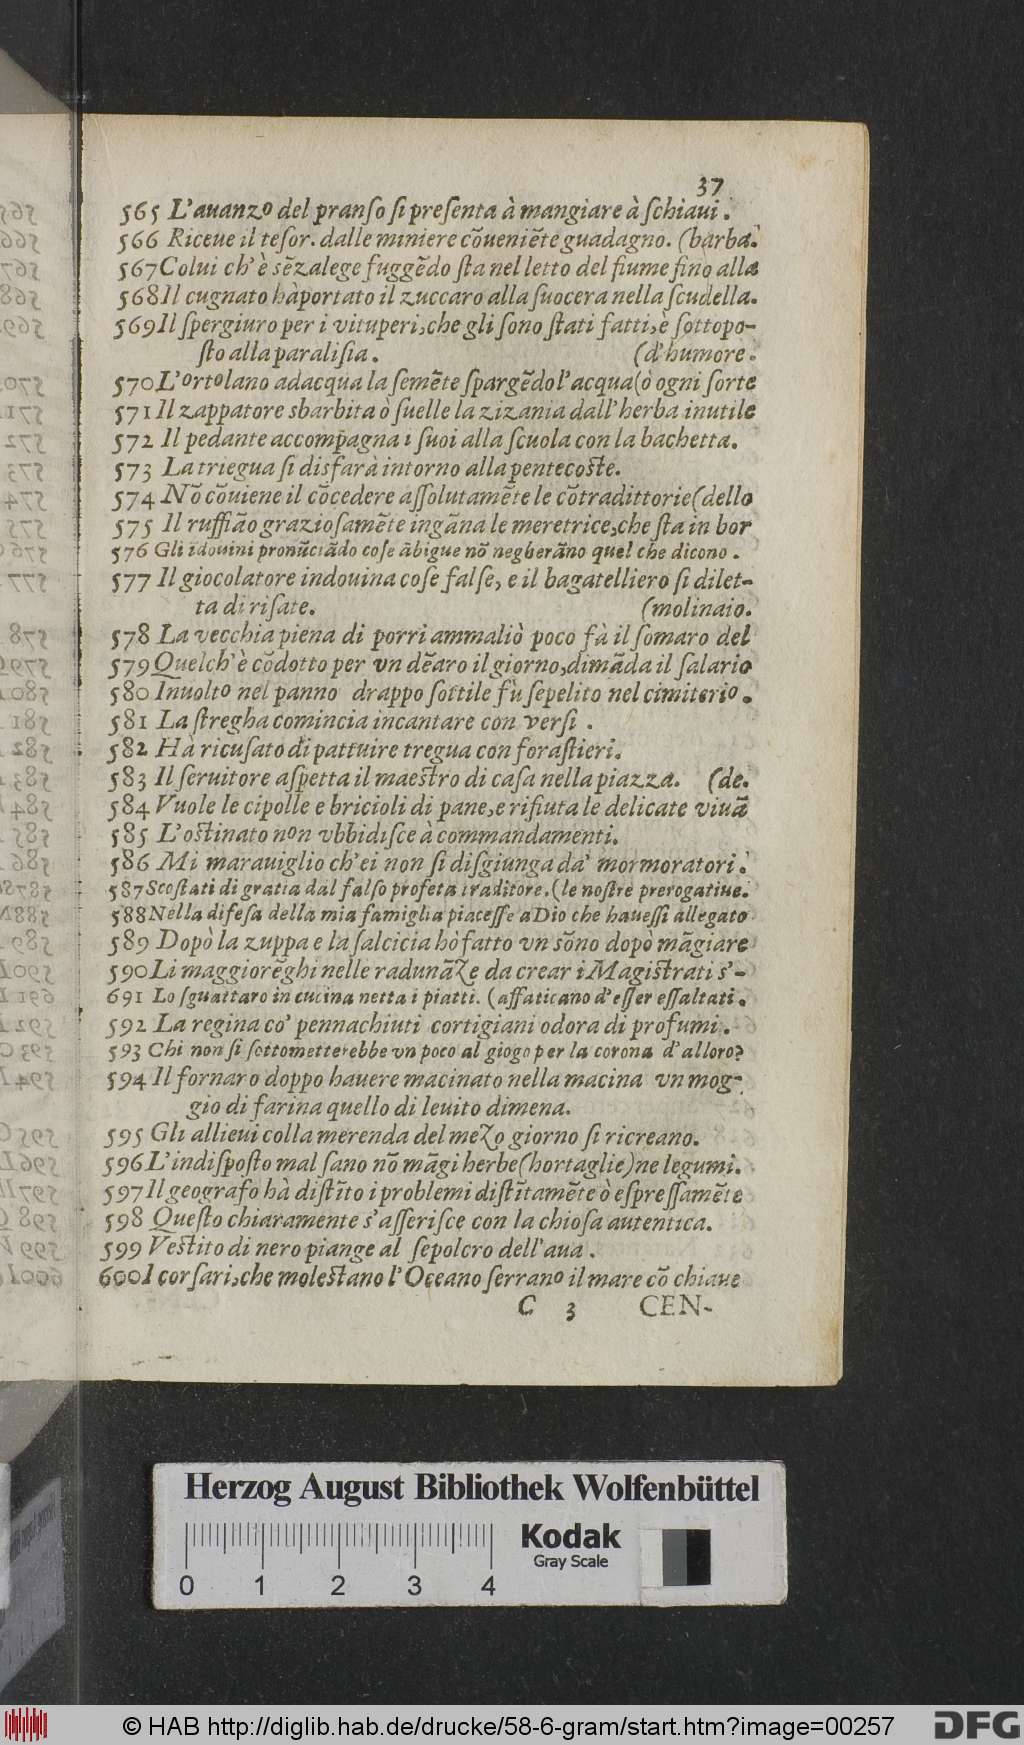 37
565 L'auanzo del pranſo ſi preſenta à mangiare à ſchiaui.
566 Riceue il teſor. dalle miniere cõueniẽte guadagno. (barba.
567 Colui ch'è sẽzalege fuggẽdo ſta nel letto del fiume fino alla
568 Il cugnato hà portato il zuccaro alla ſuocera nella ſcudella.
569 Il ſpergiuro per i vituperi, che gli ſono ſtati fatti, è ſottopo-
ſto alla paraliſia. (d'humore.
570 L'ortolano adacqua la ſemẽte ſpargẽdo l'acqua (ò ogni ſorte
571 Il zappatore sbarbita o ſuelle la zizania dall'herba inutile
572 Il pedante accompagna i ſuoi alla ſcuola con la bachetta.
573 La triegua ſi disfarà intorno alla pentecoſte.
574 Nõ cõuiene il cõcedere aſſolutamẽte le cõtradittorie (dello
575 Il ruffião grazioſamẽte ingãna le meretrice, che ſta in bor
576 Gli idouini pronũciãdo coſe ãbigue nõ negherãno quel che dicono.
577 Il giocolatore indouina coſe falſe, e il bagatelliero ſi dilet-
ta di riſate. (molinaio.
578 La vecchia piena di porri ammaliò poco fà il ſomaro del
579 Quelch'è cõdotto per vn dẽaro il giorno, dimãda il ſalario
580 Inuolto nel panno drappo ſottile fù ſepelito nel cimiterio.
581 La ſtregha comincia incantare con verſi.
582 Hà ricuſato di pattuire tregua con foraſtieri.
583 Il ſeruitore aſpetta il maeſtro di caſa nella piazza. (de.
584 Vuole le cipolle e bricioli di pane, e rifiuta le delicate viuã
585 L'oſtinato non vbbidiſce à commandamenti.
586 Mi marauiglio ch'ei non ſi diſgiunga da' mormoratori.
587 Scoſtati di gratia dal falſo profeta traditore. (le noſtre prerogatiue.
588 Nella difeſa della mia famiglia piaceſſe a Dio che haueſſi allegato
589 Dopò la zuppa e la ſalcicia hò fatto vn sõno dopò mãgiare
590 Li maggiorẽghi nelle radunãze da crear i Magiſtrati s'-
691 Lo ſguattaro in cucina netta i piatti. (affaticano d'eſſer eſſaltati.
592 La regina co' pennachiuti cortigiani odora di profumi.
593 Chi non ſi ſottometterebbe vn poco al giogo per la corona d'alloro?
594 Il fornaro doppo hauere macinato nella macina vn mog-
gio di farina quello di leuito dimena.
595 Gli allieui colla merenda del mezo giorno ſi ricreano.
596 L'indiſpoſto mal ſano nõ mãgi herbe (hortaglie) ne legumi.
597 Il geografo hà diſtĩto i problemi diſtĩtamẽte ò eſpreſſamẽte
598 Queſto chiaramente s'aſſeriſce con la chioſa autentica.
599 Veſtito di nero piange al ſepolcro dell'aua.
600 I corſari, che moleſtano l'Oceano ſerrano il mare cõ chiaue
C 3 CEN-
Herzog August Bibliothek Wolfenbüttel
Kodak
Gray Scale
0 1 2 3 4
© HAB http://diglib.hab.de/drucke/58-6-gram/start.htm?image=00257
DFG